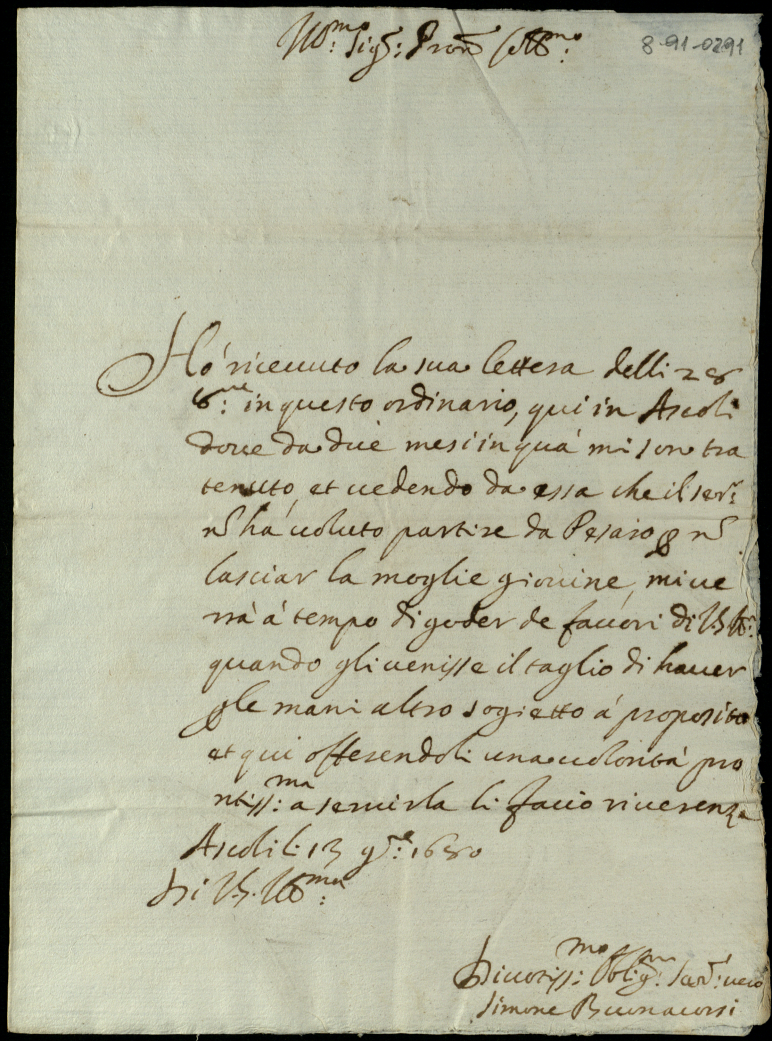 8-91-0291
Ill^mo: Sig^r: Pron̄ Col^mo:
Hò riceuuto la sua lettera delli 28
8^bre: in questo ordinario, qui in Ascoli
doue da due mesi in quà mi son tra
tenuto, et uedendo da essa che il ser^r:
nō hà uoluto partire da Pesaro p nō
lasciar la moglie giouine, mi ue
rrà à tempo di goder de fauori di VS Ill^ma:
quando gli uenisse il taglio di hauer
p le mani altro sogietto à proposito
et qui offerendoli una uolontà pro
ntiss:^ma à seruirla li faccio riuerenza
Ascoli li 13 9^re: 1680
Di VS. Ill^ma:
Diuotiss:^mo Oblig:^mo Seru^r: uero
Simone Buonacorsi